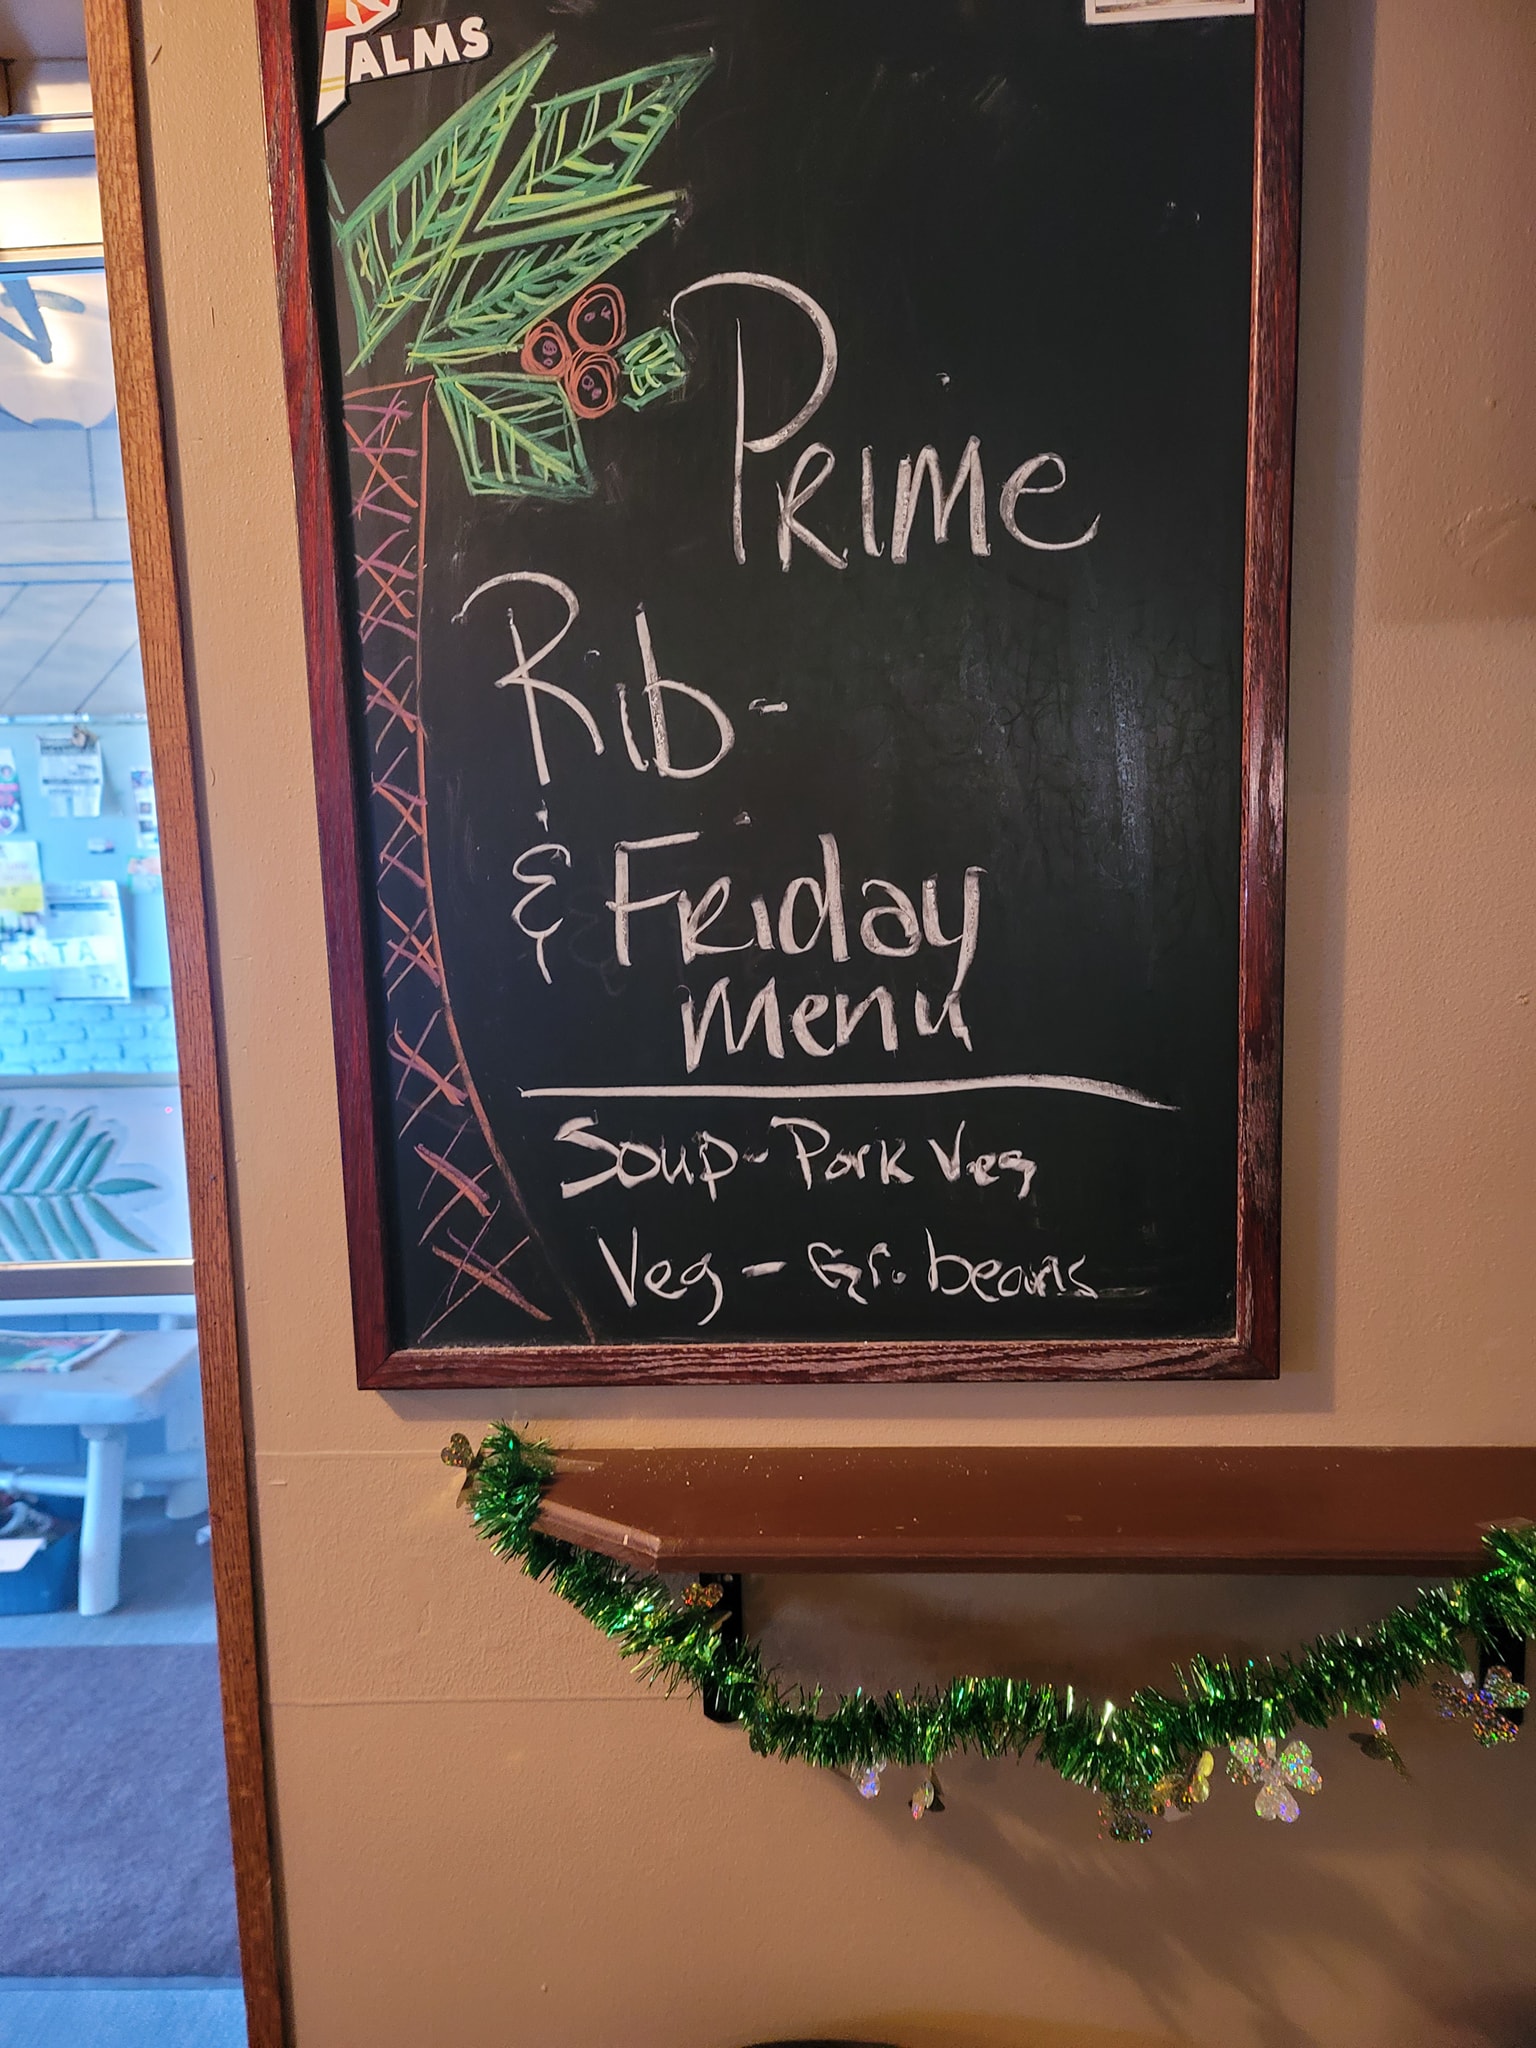 PALMS
Prime
Rib-
& Friday
menu
Soup- Pork Veg
Veg - Gr. beans